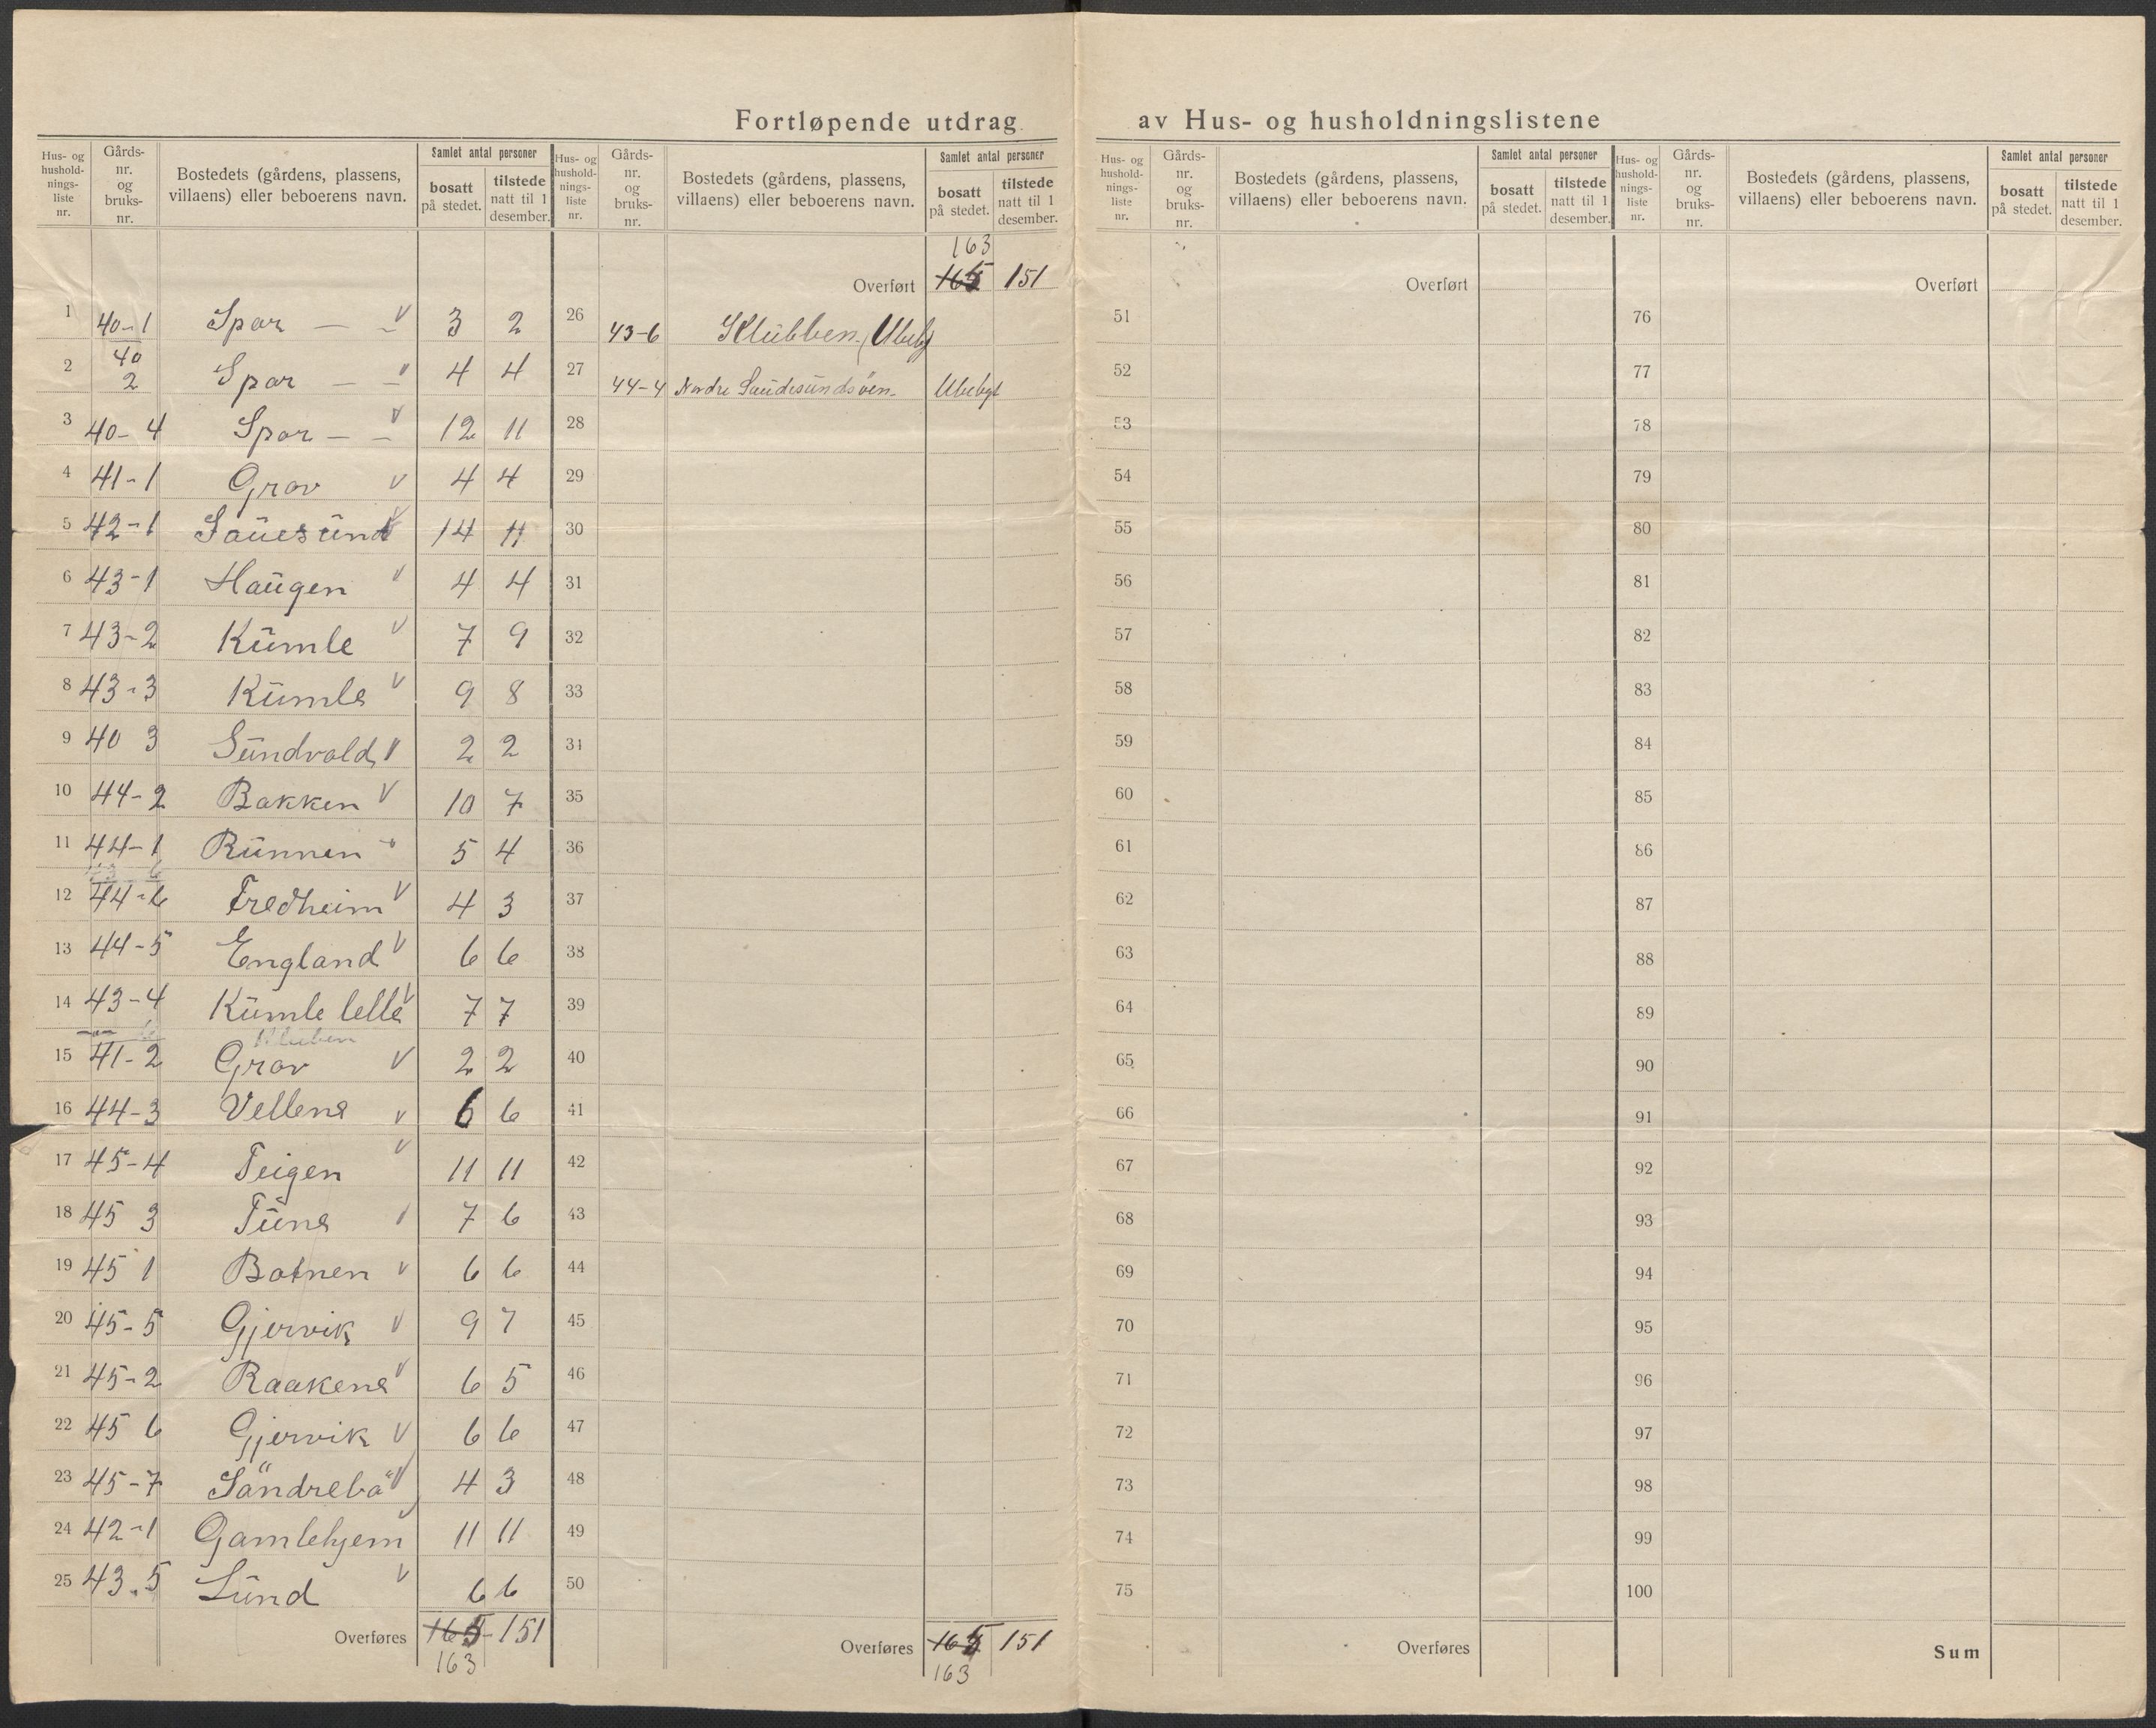 Fortløpende utdrag av Hus- og husholdningslistene
Hus- og hushold-nings-liste nr. | Gårds-nr. og bruks-nr. | Bostedets (gårdens, plassens, villaens) eller beboerens navn. | Samlet antal personer | bosatt på stedet. | tilstede natt til 1 desember.
1 40-1 Spar — — V 3 2
2 40 2 Spar — — V 4 4
3 40-4 Spar — — V 12 11
4 41-1 Grov V 4 4
5 42-1 Sauesund V 14 11
6 43-1 Haugen V 4 4
7 43-2 Kumle V 7 9
8 43-3 Kumle V 9 8
9 40 3 Sundvold V 2 2
10 44-2 Bakken V 10 7
11 44-1 Runnen 5 4
12 44-6 Fredheim V 4 3
13 44-5 England V 6 6
14 43-4 Kumle lelle V 7 7
15 41-2 Grov V 2 2
16 44-3 Vellene V 6 6
17 45-4 Teigen V 11 11
18 45 3 Tune V 7 6
19 45 1 Botnen V 6 6
20 45-5 Gjervik V 9 7
21 45-2 Raakene V 6 5
22 45 6 Gjervik V 6 6
23 45-7 Söndrebö V 4 3
24 42-1 Gamlehjem V 11 11
25 43.5 Lund V 6 6
Overføres 165 - 151
163
Hus- og hushold-nings-liste nr. | Gårds-nr. og bruks-nr. | Bostedets (gårdens, plassens, villaens) eller beboerens navn. | Samlet antal personer | bosatt på stedet. | tilstede natt til 1 desember.
163
Overført 165 151
26 43-6 Klubben (Ubeby
27 44-4 Nordre Sandesundsøen Ubebygt
28
29
30
31
32
33
34
35
36
37
38
39
40
41
42
43
44
45
46
47
48
49
50
Overføres 165 151
163
Hus- og hushold-nings-liste nr. | Gårds-nr. og bruks-nr. | Bostedets (gårdens, plassens, villaens) eller beboerens navn. | Samlet antal personer | bosatt på stedet. | tilstede natt til 1 desember.
Overført
51
52
53
54
55
56
57
58
59
60
61
62
63
64
65
66
67
68
69
70
71
72
73
74
75
Overføres
Hus- og hushold-nings-liste nr. | Gårds-nr. og bruks-nr. | Bostedets (gårdens, plassens, villaens) eller beboerens navn. | Samlet antal personer | bosatt på stedet. | tilstede natt til 1 desember.
Overført
76
77
78
79
80
81
82
83
84
85
86
87
88
89
90
91
92
93
94
95
96
97
98
99
100
Sum